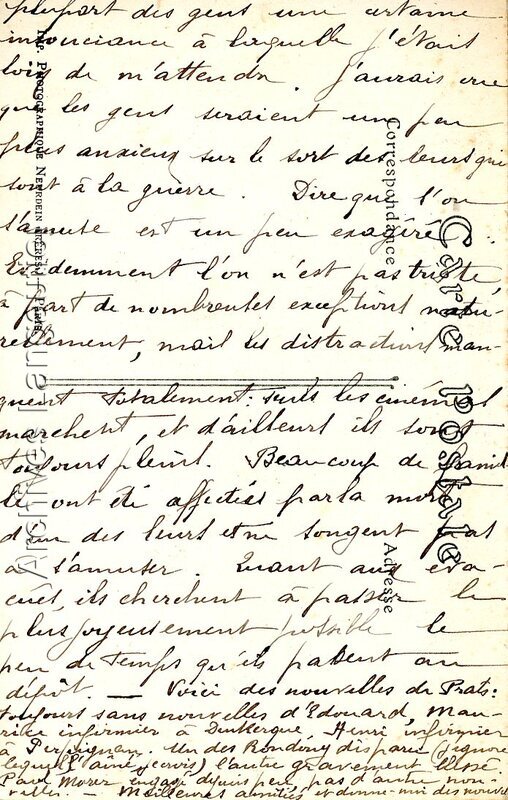 plupart des gens une certaine
insouciance à laquelle j'étais
loin de m'attendre. J'aurais cru
que les gens seraient un peu
plus anxieux sur le sort des leurs qui
sont à la guerre. Dire que l'on
s'amuse est un peu exagéré.
Evidemment l'on n'est pas triste,
à part de nombreuses exceptions natu-
rellement, mais les distractions man-
quent totalement: seuls les cinémas
marchent, et d'ailleurs ils sont
toujours pleins. Beaucoup de famil-
les ont été affectées par la mort
d'un des leurs et ne songent pas
à s'amuser. Quant aux éva-
cués, ils cherchent à passer le
plus joyeusement possible le
peu de temps qu'ils passent au
dépôt. — Voici des nouvelles de Prats:
toujours sans nouvelles d'Edouard, Mau-
rice infirmier à Dunkerque. Henri infirmier
à Perpignan. Un des Rondony disparu (j'ignore
lequel) l'aîné (cervis) l'autre gravement blessé.
Paul Morer engagé depuis peu pas d'autre nou-
velles. — Meilleures amitiés et donne-moi des nouvel
Carte postale
Correspondance
Adresse
Imp. Photographique Neurdein Frères — Paris